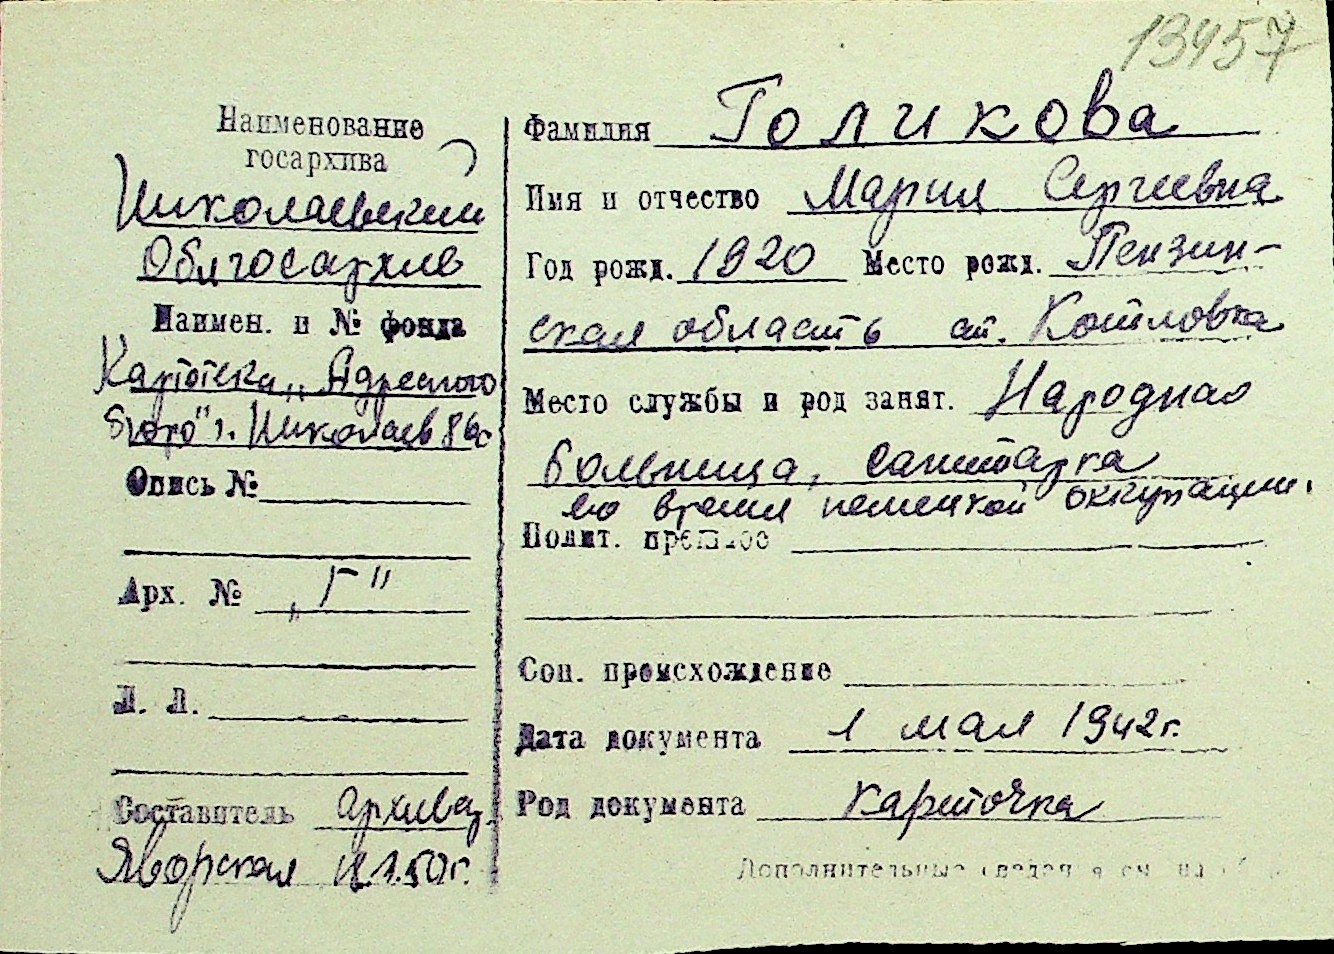 13457
Наименование
госархива
Николаевский
Облгосархив
Наимен. и № фонда
Картотека „Адресного
бюро" г. Николаев
Опись №
Арх. № „Г"
Л. Л.
Составитель архивар.
Яворская 1.50г.
Фамилия Голикова
Имя и отчество Мария Сергеевна
Год рожд. 1920 Место рожд. Пензин-
ская область ст. Котловка
Место службы и род занят. Народная
больница, санитарка
во время немецкой оккупации.
Полит. прошлое
Соц. происхождение
Дата документа 1 мая 1942г.
Род документа карточка
Дополнительные сведен я см на об